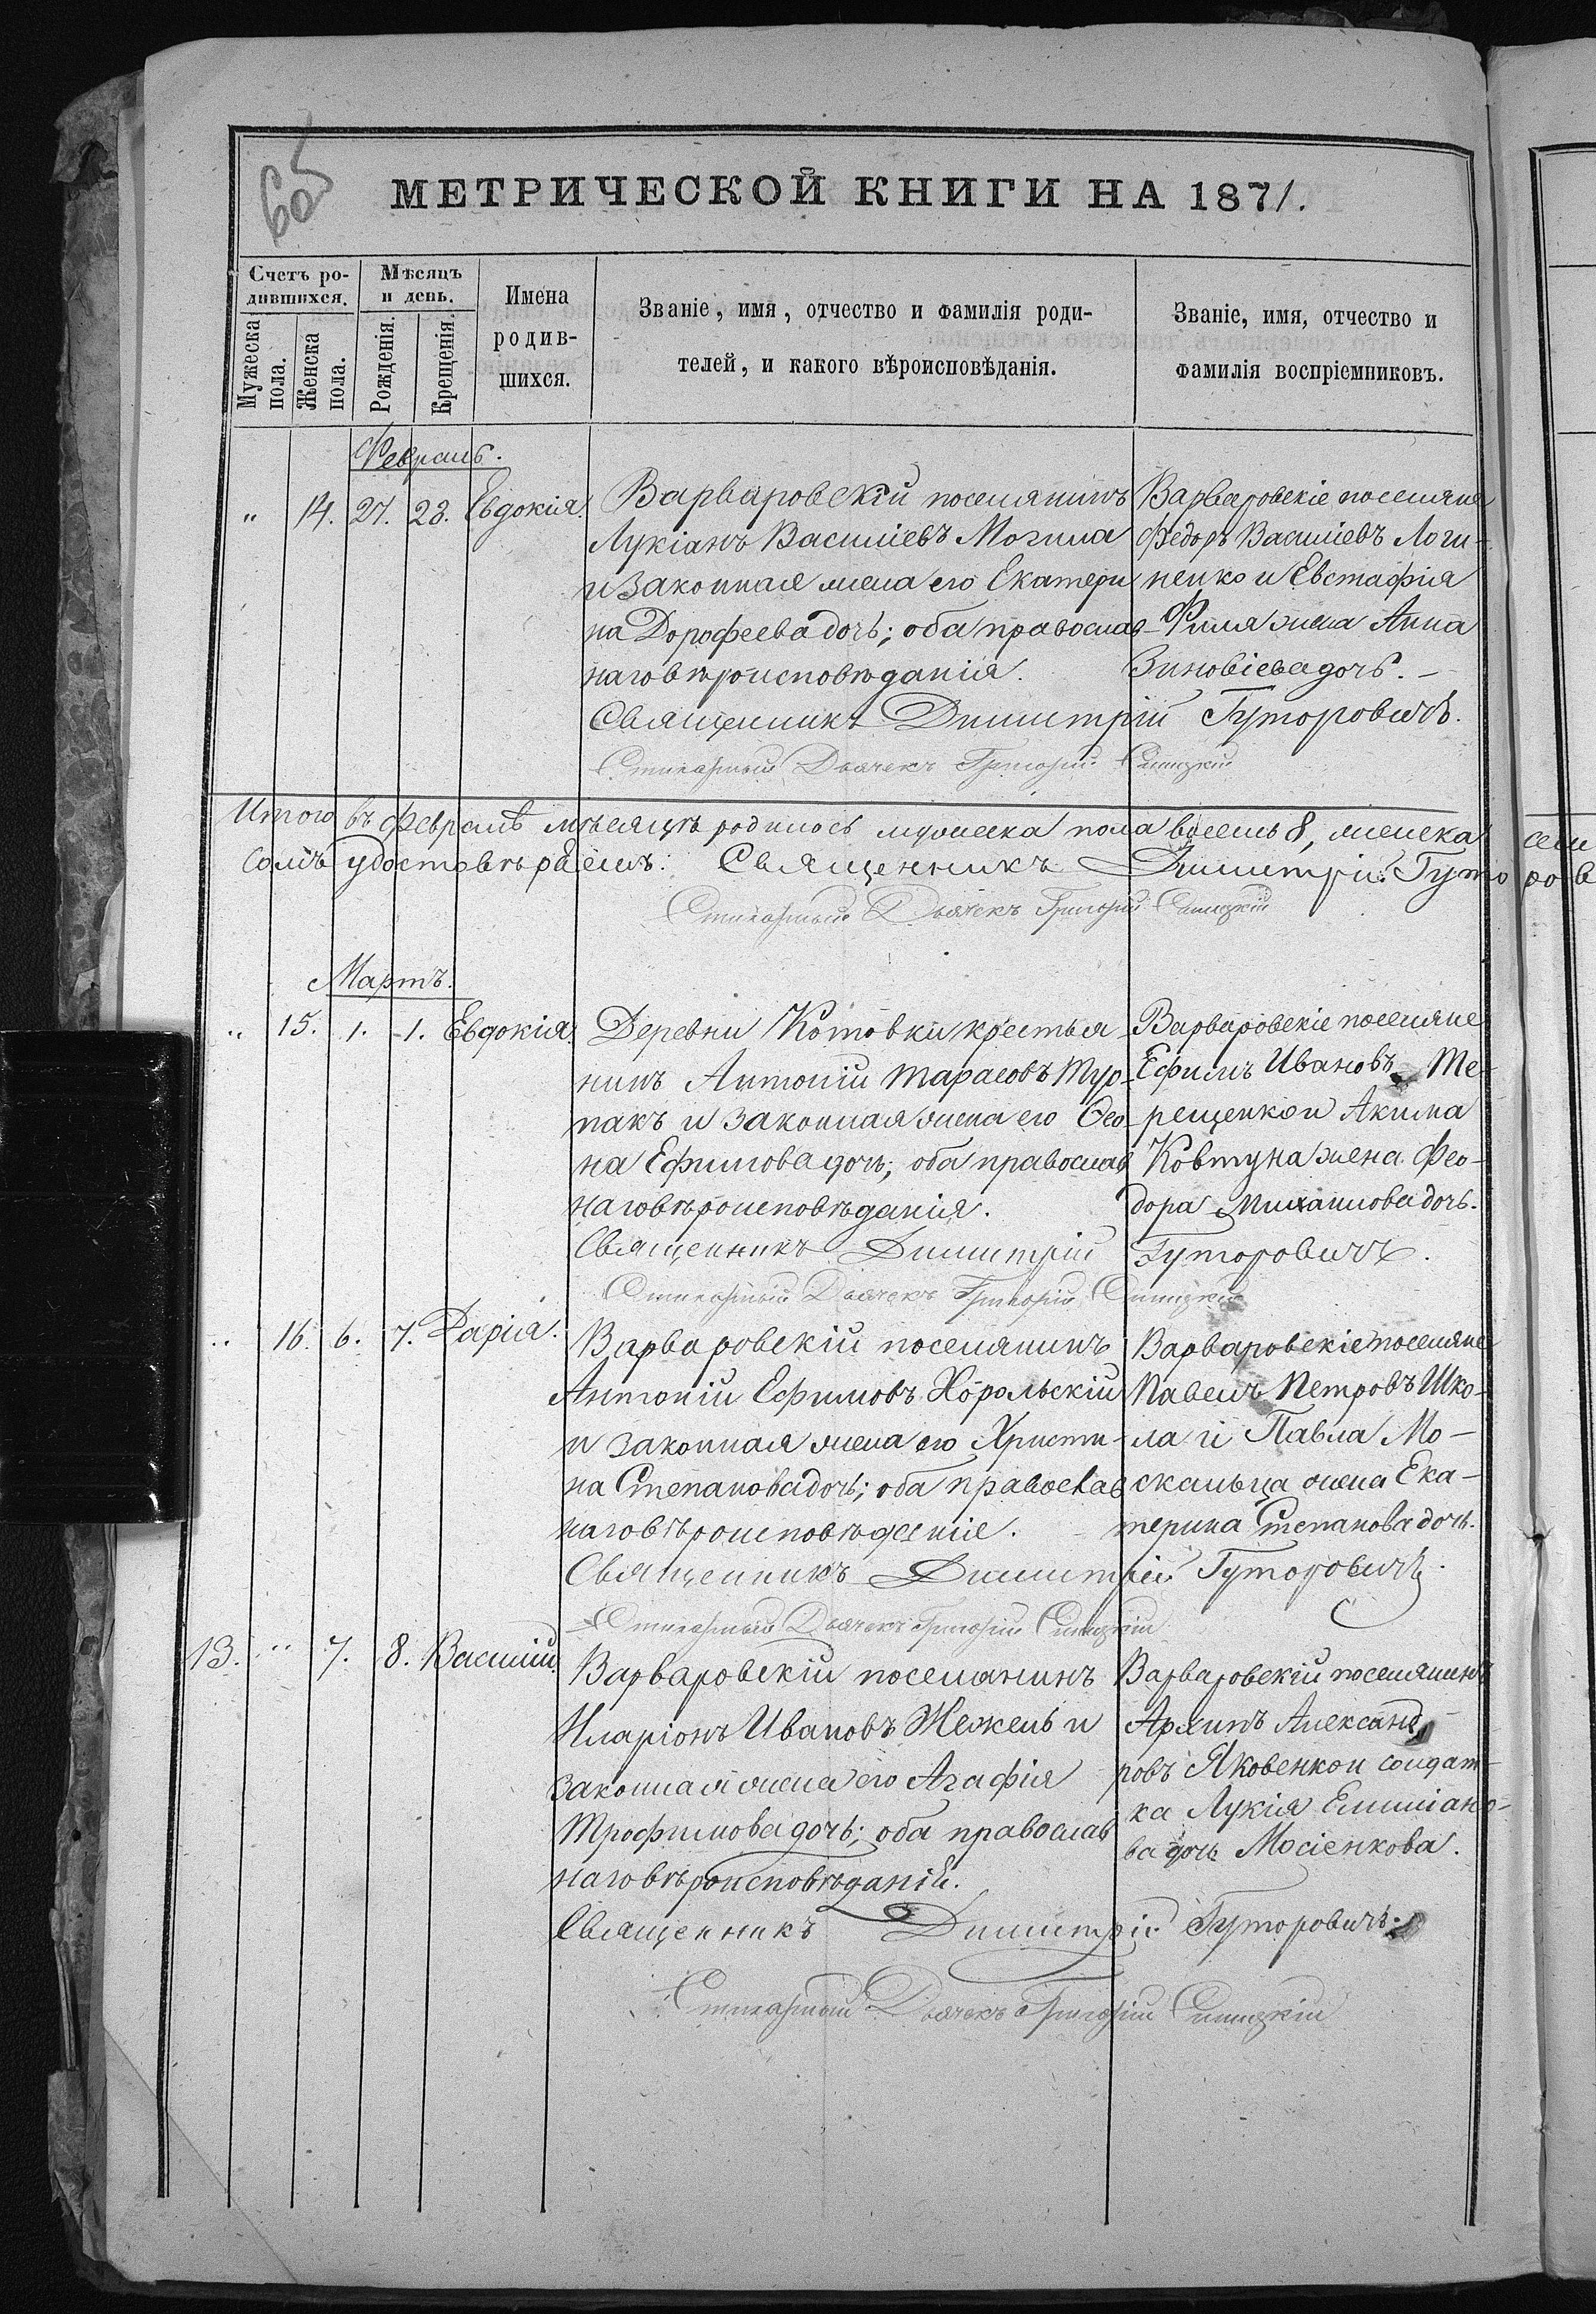 605
МЕТРИЧЕСКОЙ КНИГИ НА 1871.
Счетъ ро-
дившихся.
Мѣсяцъ
и день.
Мужеска
пола.
Женска
пола.
Рожденія.
Крещенія.
Имена
родив-
шихся.
Званіе, имя, отчество и фамилія роди-
телей, и какого вѣроисповѣданія.
Званіе, имя, отчество и
фамилія воспріемниковъ.
Февраль.
" 14. 27. 28. Евдокія.
Варваровскій поселянинъ
Лукіанъ Василіевъ Могила
и законная жена его Екатери
на Дорофеева дочь; оба православ-
наго вѣроисповѣданія.
Варваровскіе поселяне
Федоръ Василіевъ Логи-
ненко и Евстафія
Филя жена Анна
Зиновіева дочь. -
Священникъ Димитрій Гуторовичъ.
Стихарный Дьячекъ Григорій Синицкій
Итого въ Февралѣ мѣсяцѣ родилось мужеска пола восемь 8, женска сем
Въ чемъ удостовѣряемъ: Священникъ Димитрій Гуторов
Стихарный Дьячекъ Григорій Синицкій
Мартъ.
" 15. 1. 1. Евдокія.
Деревни Котовки крестья
нинъ Антоній Тарасовъ Тур-
пакъ и законная жена его Ѳео-
на Ефимова дочь; оба православ
наго вѣроисповѣданія.
Варваровскіе поселяне
Ефимъ Ивановъ Те-
рещенко и Акима
Ковтуна жена Фео-
дора Михаилова дочь.
Священникъ Димитрій Гуторовичъ.
Стихарный Дьячекъ Григорій Синицкій
" 16. 6. 7. Дарія.
Варваровскій поселянинъ
Антоній Ефимовъ Хорольскій
и законная жена его Христи-
на Степанова дочь; оба православ
наго вѣроисповѣданіе.
Варваровскіе поселяне
Павелъ Петровъ Шко-
ла и Павла Мо-
скальца жена Ека-
терина Степанова дочь.
Священникъ Димитрій Гуторовичъ.
Стихарный Дьячекъ Григорій Синицкій
13. " 7. 8. Василій.
Варваровскій поселянинъ
Иларіонъ Ивановъ Нежель и
законная жена его Агафія
Трофимова дочь; оба православ
наго вѣроисповѣданія.
Варваровскій поселянинъ
Архипъ Александ-
ровъ Яковенко и солдат-
ка Лукія Емиліано-
ва дочь Мосіенкова.
Священникъ Димитрій Гуторовичъ.
Стихарный Дьячекъ Григорій Синицкій